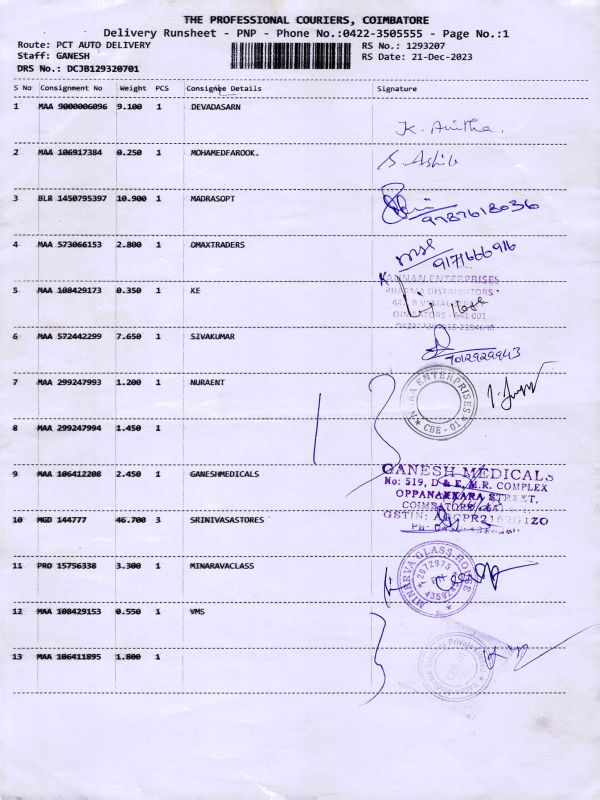 THE PROFESSIONAL COURIERS, COIMBATORE
Delivery Runsheet - PNP - Phone No.:0422-3505555 - Page No.:1
Route: PCT AUTO DELIVERY RS No.: 1293207
Staff: GANESH RS Date: 21-Dec-2023
DRS No.: DCJB129320701
S No Consignment No Weight PCS Consignee Details Signature
1 MAA 9000006096 9.100 1 DEVADASARN
K. Anitha.
2 MAA 106917384 0.250 1 MOHAMEDFAROOK.
3 BLR 1450795397 10.900 1 MADRASOPT
9787618036
4 MAA 573066153 2.800 1 DMAXTRADERS
9171666916
KANNAN ENTERPRISES
PHARMA DISTRIBUTORS
5 MAA 108429173 0.350 1 KE
6 MAA 572442299 7.650 1 SIVAKUMAR
7012929943
7 MAA 299247993 1.200 1 NURAENT
ENTERPRISES
CBE - 01
8 MAA 299247994 1.450 1
9 MAA 106412208 2.450 1 GANESHMEDICALS
GANESH MEDICALS
No: 519, D & E, M.R. COMPLEX
OPPANAKKARA STREET,
10 MGD 144777 46.700 3 SRINIVASASTORES
11 PRO 15756338 3.300 1 MINARAVACLASS
MINARVA GLASS HOUSE
12 MAA 108429153 0.550 1 VMS
13 MAA 106411895 1.800 1